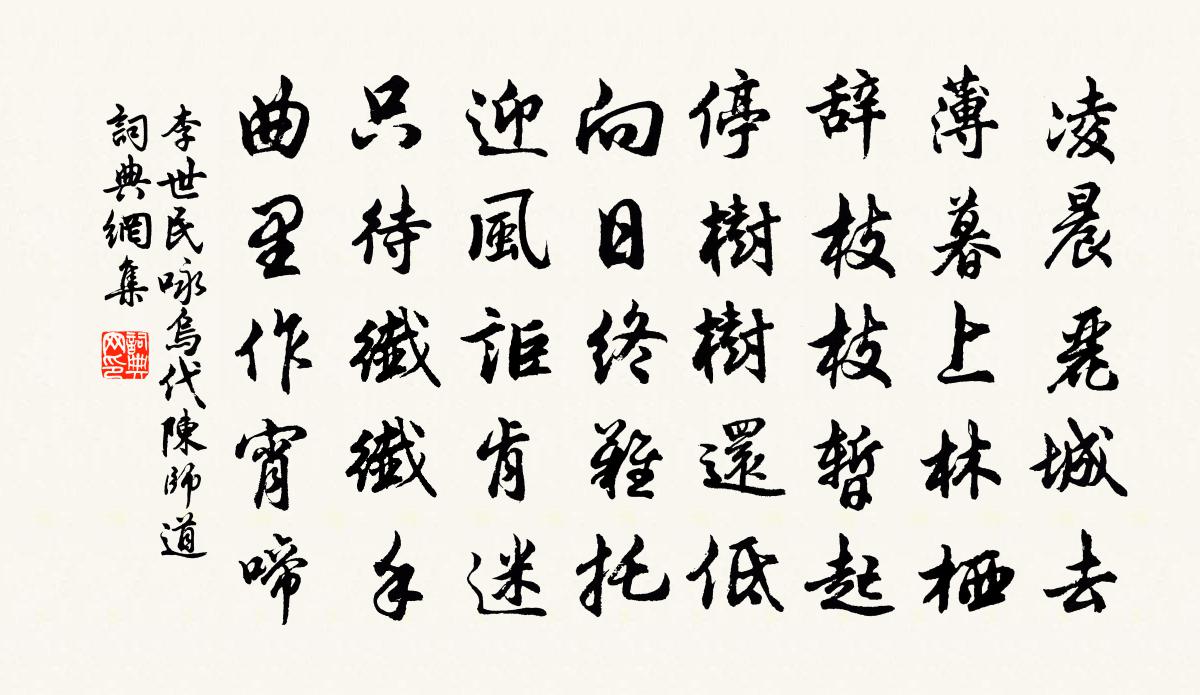 凌晨麗城去
薄暮上林栖
辞枝枝暫起
停樹樹還低
向日終難托
迎風詎肯迷
只待纖纖手
曲里作宵啼
李世民咏烏代陳師道
詞典網集
詞典网印